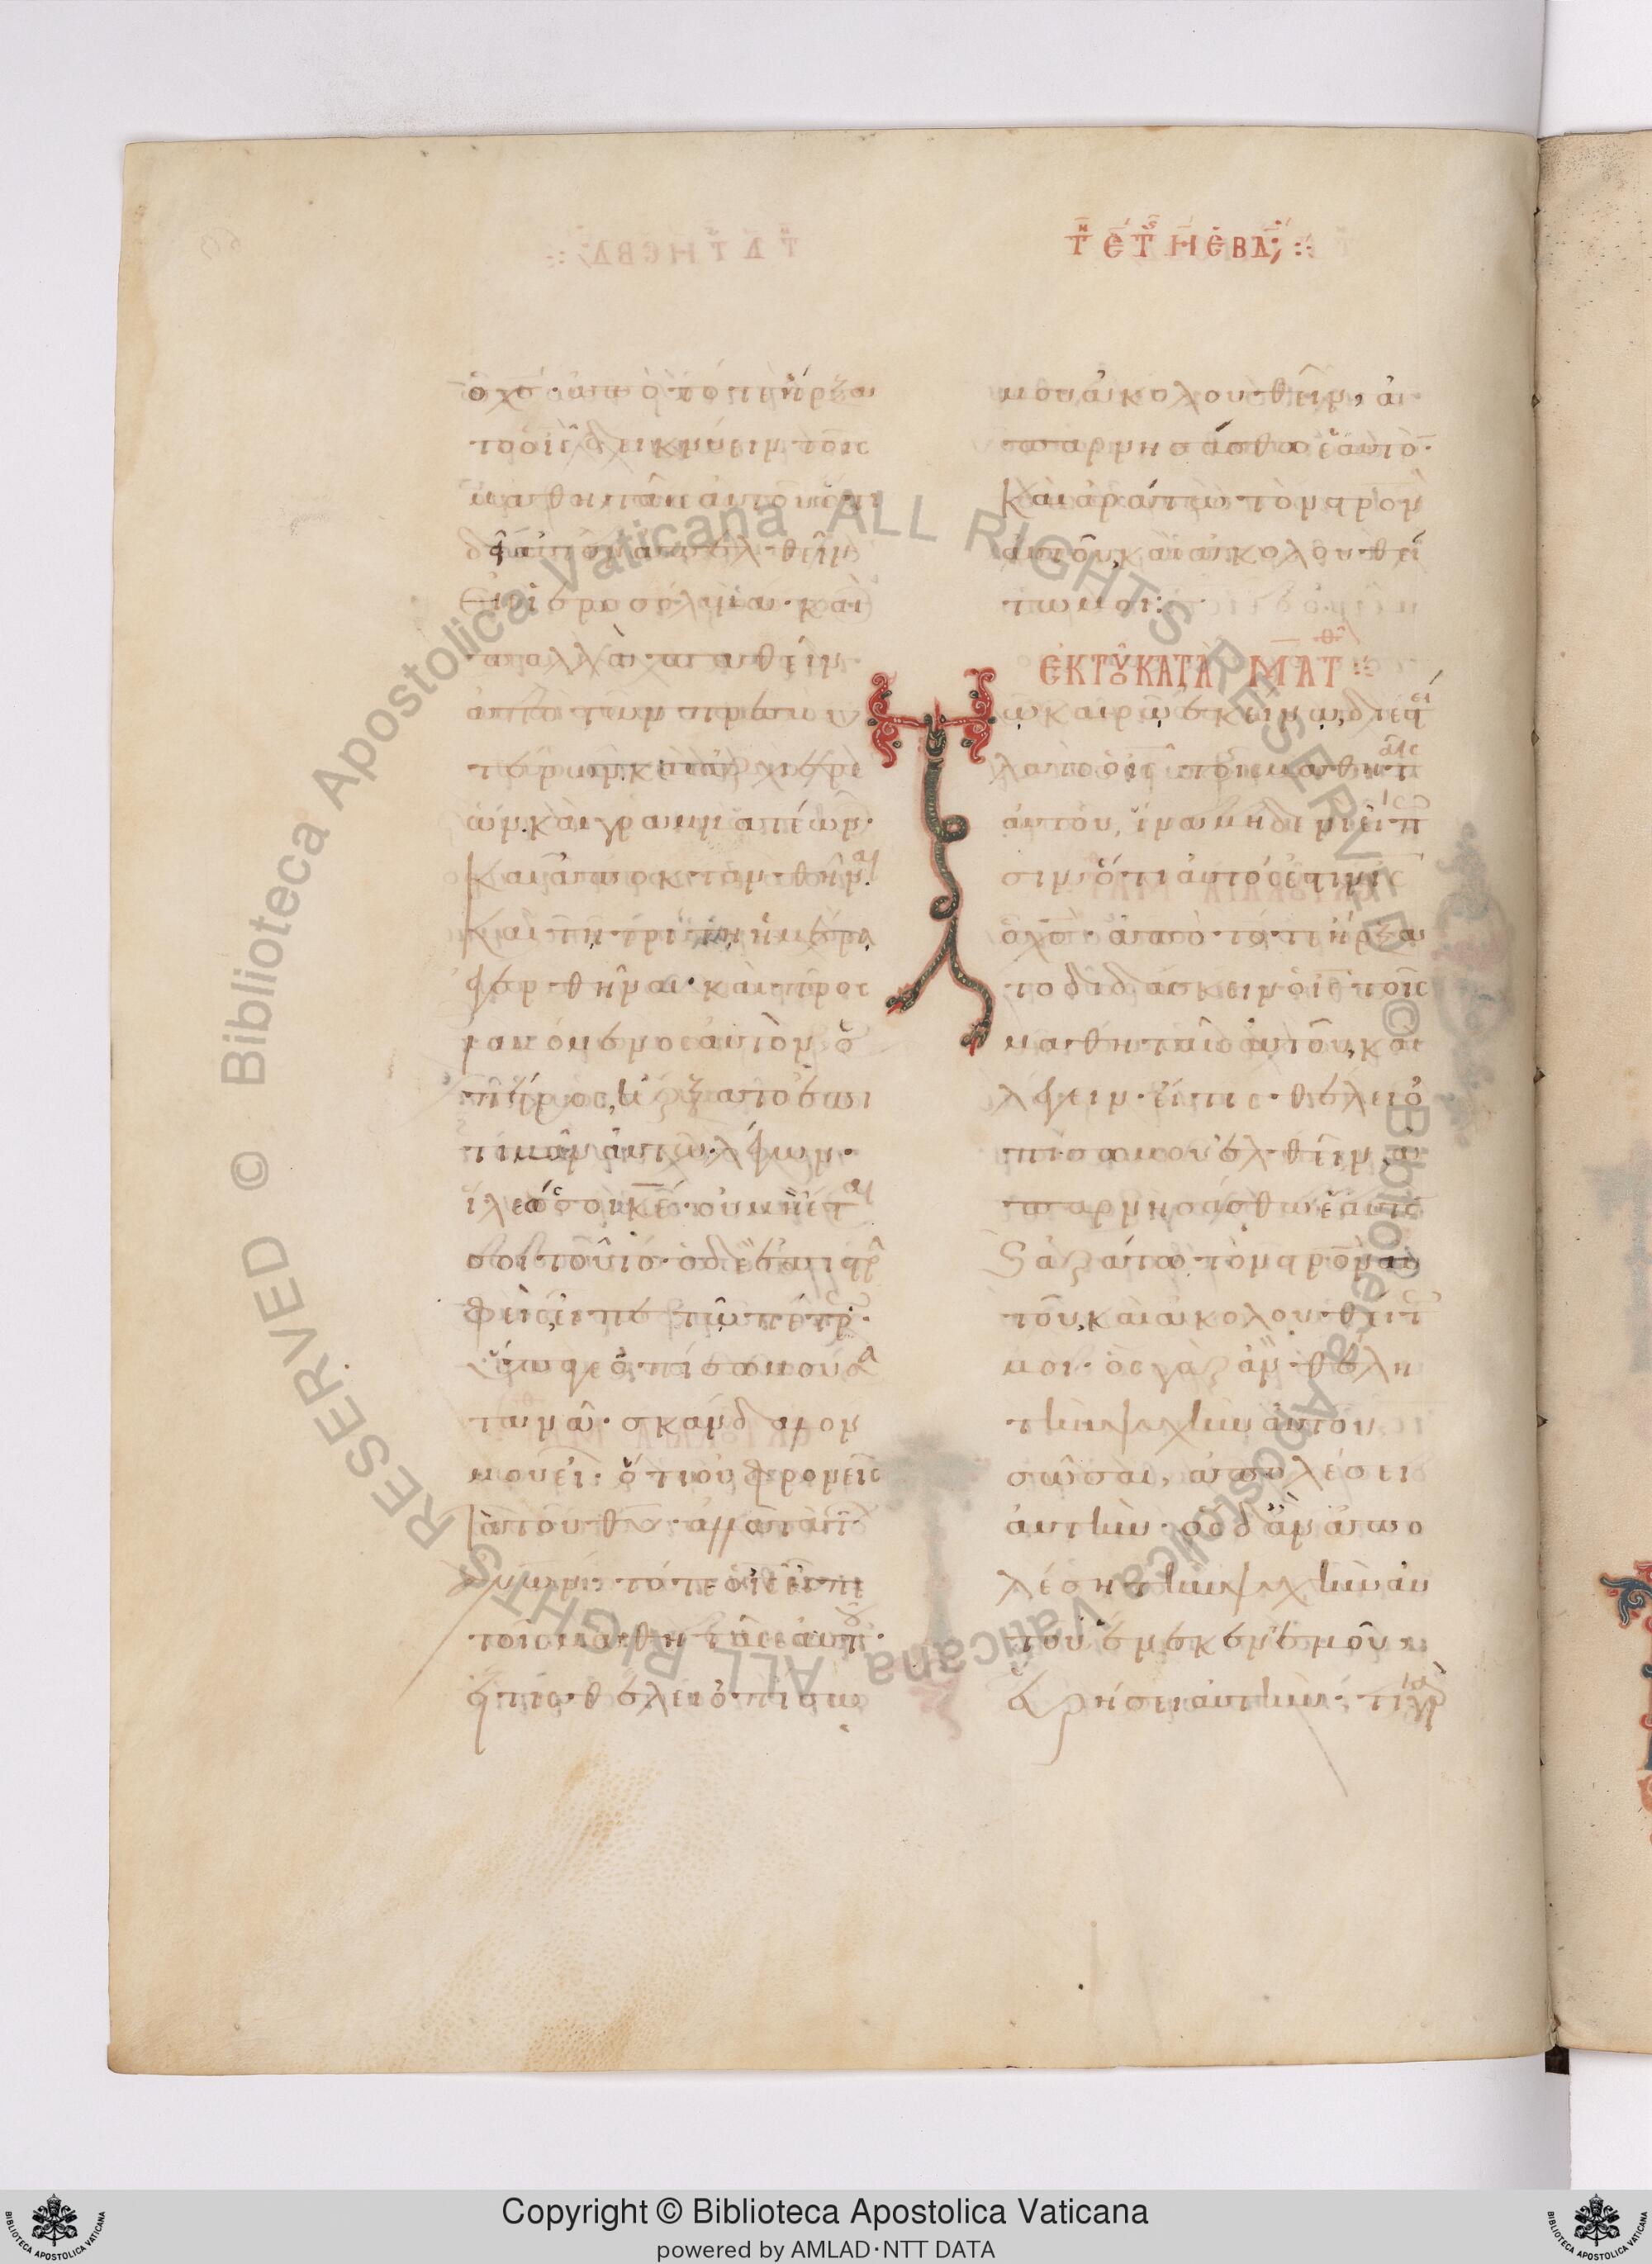 Τῇ Ε Τῆς Η ΕΒΔ
ὁ χ̅ς̅· ἀπὸ τότε ἤρξα
το ὁ ι̅ς̅ δεικνύειν τοῖς
μαθηταῖς αὐτοῦ ὅτι
δεῖ αὐτὸν ἀπελθεῖν
εἰς ἱεροσόλυμα· καὶ
πολλὰ παθεῖν
ἀπὸ τῶν πρεσβυ
τέρων καὶ ἀρχιερέ
ων καὶ γραμματέων·
καὶ ἀποκτανθῆναι·
καὶ τῇ τρίτῃ ἡμέρᾳ
ἐγερθῆναι· καὶ προς
λαβόμενος αὐτὸν ὁ
πέτρος, ἤρξατο ἐπι
τιμᾶν αὐτῷ λέγων·
ἵλεώς σοι κ̅ε̅· οὐ μὴ ἔσται
σοι τοῦτο· ὁ δὲ ἐπιστρα
φεὶς εἶπε τῷ πέτρῳ·
ὕπαγε ὀπίσω μου σα
τανᾶ· σκάνδαλον
μου εἶ· ὅτι οὐ φρονεῖς
τὰ τοῦ θ̅υ̅· ἀλλὰ τὰ τῶν
ἀνων· τότε ὁ ι̅ς̅ εἶπε
τοῖς μαθηταῖς αὐτοῦ·
εἴ τις θέλει ὀπίσω
μου ἀκολουθεῖν, ἀ
παρνησάσθω ἑαυτὸν·
καὶ ἀράτω τὸν σταυρὸν
αὐτοῦ, καὶ ἀκολουθεί
τω μοι:
ΕΚ ΤΟΥ ΚΑΤΑ ΜΑΤΘ
Τῷ καιρῷ ἐκείνῳ, διεστεί
λατο ὁ ι̅ς̅ τοῖς μαθηταῖς
αὐτοῦ, ἵνα μηδενὶ εἴπω
σιν ὅτι αὐτός ἐστιν ι̅ς̅
ὁ χ̅ς̅· ἀπὸ τότε ἤρξα
το διδάσκειν ὁ ι̅ς̅ τοῖς
μαθηταῖς αὐτοῦ, καὶ
λέγειν· εἴ τις θέλει ὀ
πίσω μου ἐλθεῖν, ἀ
παρνησάσθω ἑαυτὸν
καὶ ἀράτω τὸν σταυρὸν αὐ
τοῦ, καὶ ἀκολουθείτω
μοι· ὃς γὰρ ἂν θέλῃ
τὴν ψυχὴν αὐτοῦ
σῶσαι, ἀπολέσει
αὐτήν· ὃς δ' ἂν ἀπο
λέσῃ τὴν ψυχὴν αὐ
τοῦ ἕνεκεν ἐμοῦ,
εὑρήσει αὐτήν· τί γὰρ
Copyright © Biblioteca Apostolica Vaticana
powered by AMLAD·NTT DATA